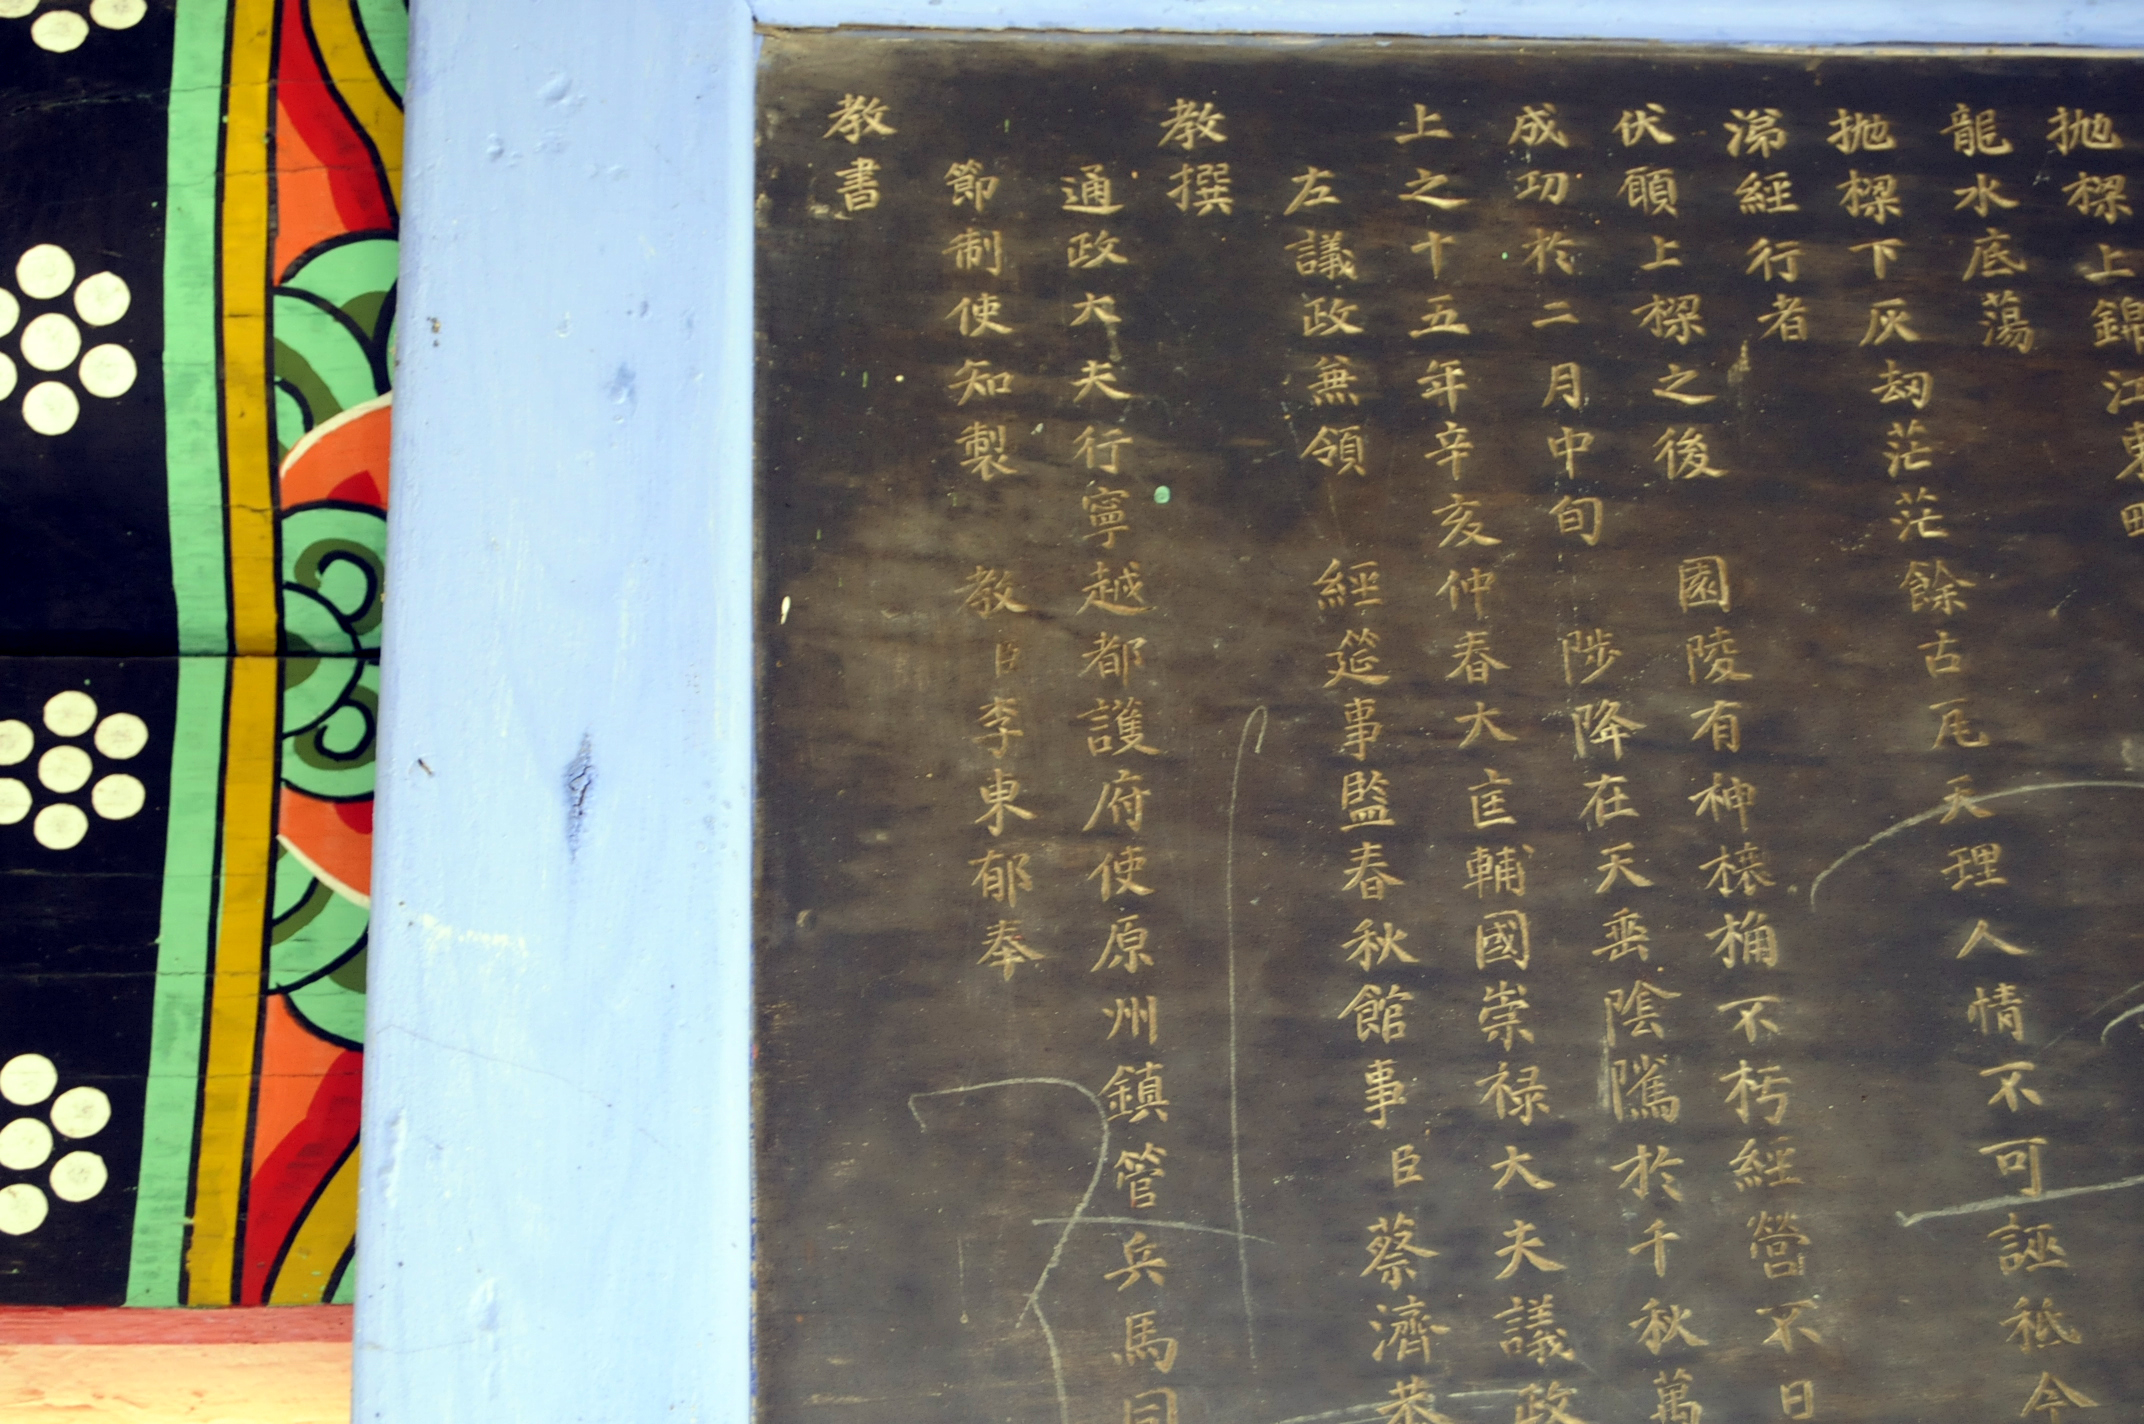 抛樑上錦江東
龍水底蕩
抛樑下灰劫茫茫餘古瓦天理人情不可誣秪今
㴆經行者
伏願上樑之後 園陵有神榱桷不朽經營不日
成功於二月中旬 陟降在天垂陰隲於千秋萬
上之十五年辛亥仲春大匡輔國崇禄大夫議政
左議政兼領 經筵事監春秋館事臣蔡濟恭
教撰
通政大夫行寧越都護府使原州鎮管兵馬同
節制使知製 教臣李東郁奉
教書